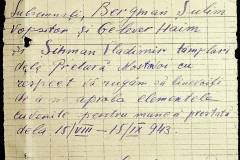 Subsemnații, Bergman Sulim
Vopsitor și Gelever Haim
și Sehman Vladimir tamplari
dela Primară Mostovoi cu
respect Vă rugăm să binevoiți
de a ne aproba elementele
cuvenite pentru munca prestată
dela 15/VIII – 15/IX 943.